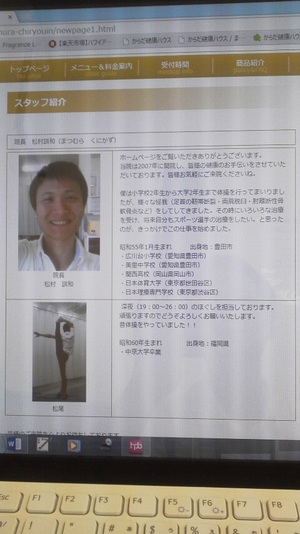 newpage1.html
Fragrance L
【楽天市場】ハワイアン
からだ健康ハウス
からだ健康ハウス / ま
からだ健康
トップページ
メニュー＆料金案内
受付時間
商品紹介
スタッフ紹介
院長 松村誠和（まつむら くにかず）
ホームページをご覧いただきありがとうございます。
当院は2007年に開院し、皆様の健康のお手伝いをさせていた
だいております。皆様お気軽にご来院くださいね。
僕は小学校2年生から大学2年生まで体操を行ってまいりまし
たが、様々な怪我
をしてしてきました。その時にいろいろな治療
を受け、将来自分もスポーツ選手の治療をしたい。と思った
のが、きっかけでこの仕事を始めました。
昭和55年1月生まれ 出身地：豊田市
・広川台小学校（愛知県豊田市）
・美里中学校（愛知県豊田市）
・関西高校（岡山県岡山市）
・日本体育大学（東京都世田谷区）
・日本理療専門学校（東京都渋谷区）
院長
松村 誠和
深夜（19：00～26：00）のほぐしを担当しております。
頑張りますのでどうぞよろしくお願いいたします。
昔体操をやっていました！！
昭和60年生まれ 出身地：福岡県
・中京大学卒業
松尾
hpb
Esc
F1
F2
F3
F4
F5
F6
F7
F8